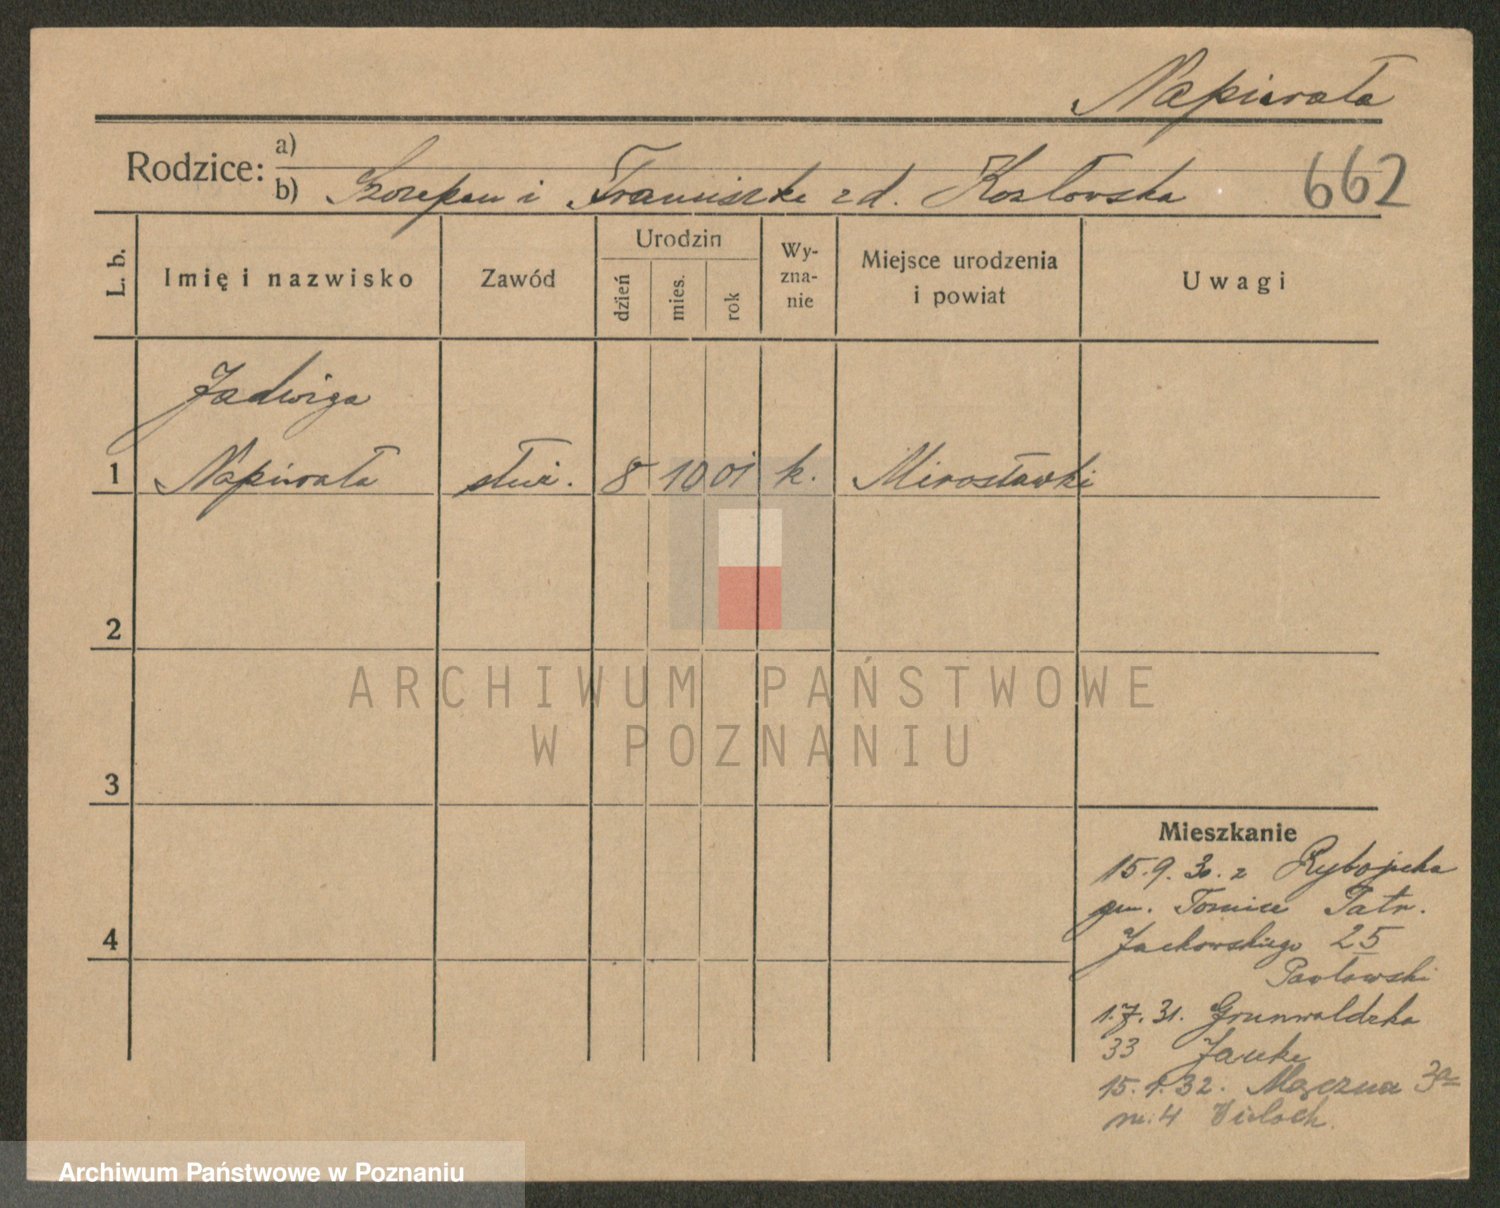 Napierała
Rodzice: a)
b) Szczepan i Franciszka z d. Kozłowska 662
L. b. Imię i nazwisko Zawód Urodzin dzień mies. rok Wy-zna-nie Miejsce urodzenia i powiat Uwagi
Jadwiga
1 Napierała służ. 8 10 01 k. Mirosławki
2
ARCHIWUM PAŃSTWOWE
W POZNANIU
3
Mieszkanie
15.9.30. z
gm. Tomice Patr.
4 Jackowskiego 25
Pawłowski
1.7.31. Grunwaldzka
33
15.1.32. 3a
m. 4
Archiwum Państwowe w Poznaniu